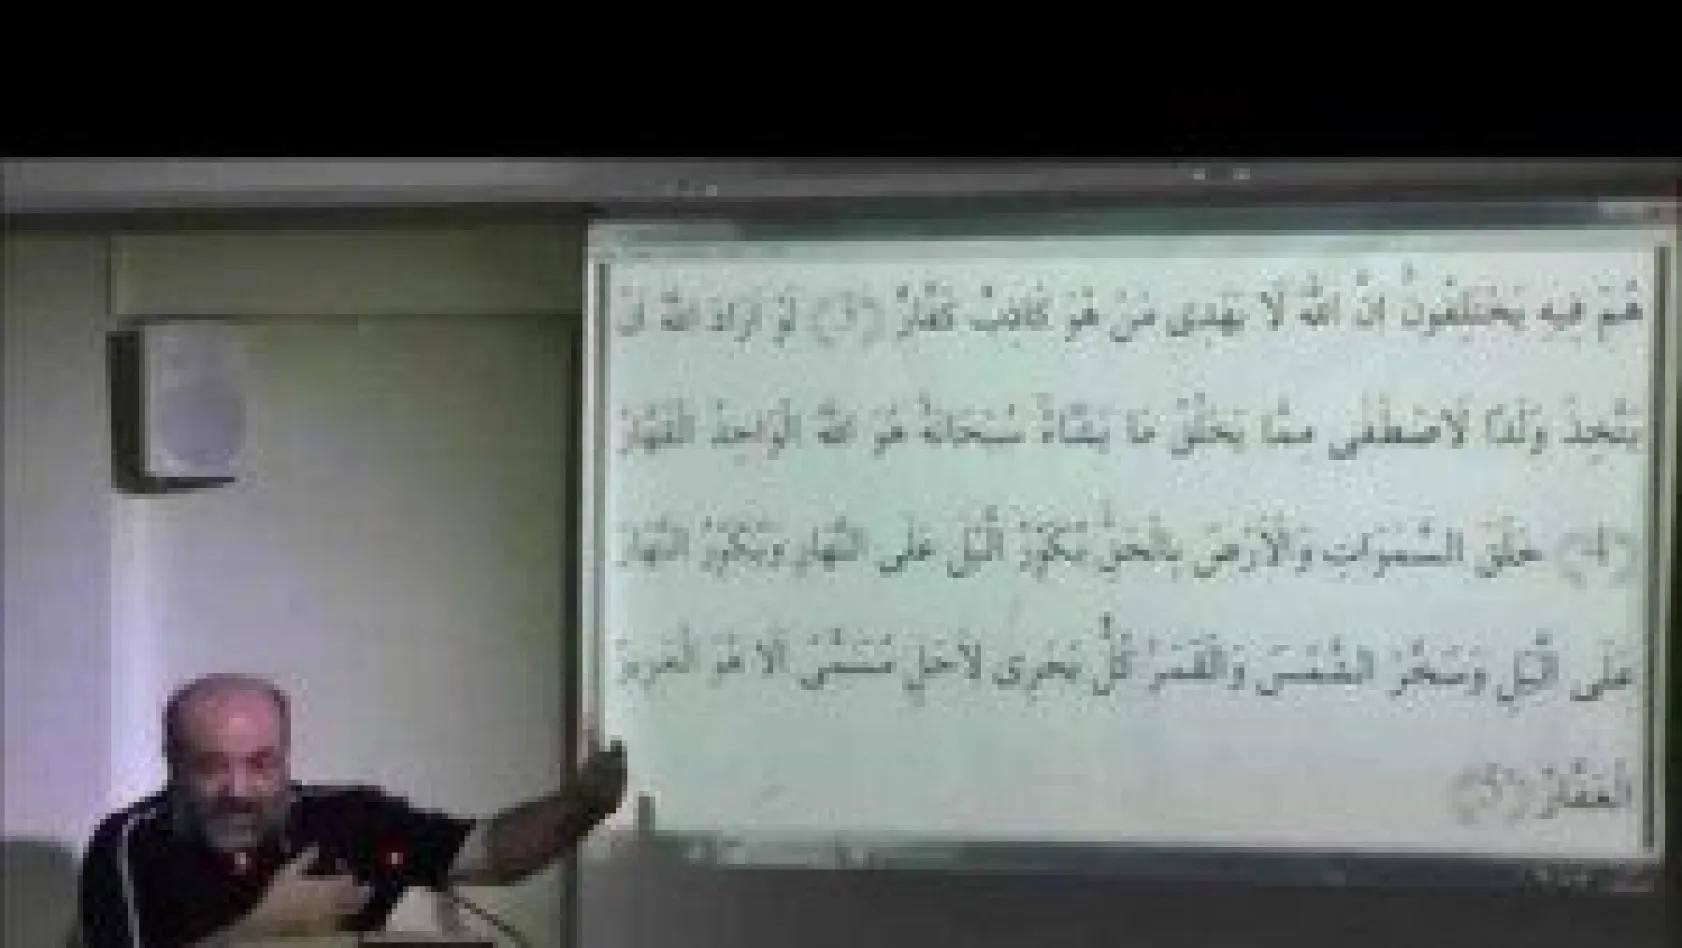 هُمْ فِيهِ يَخْتَلِفُونَ اِنَّ اللّٰهَ لَا يَهْدِى مَنْ هُوَ كَاذِبٌ كَفَّارٌ (3) لَوْ اَرَادَ اللّٰهُ اَنْ
يَتَّخِذَ وَلَدًا لَاصْطَفٰى مِمَّا يَخْلُقُ مَا يَشَاءُ سُبْحَانَهُ هُوَ اللّٰهُ الْوَاحِدُ الْقَهَّارُ
(4) خَلَقَ السَّمٰوَاتِ وَالْاَرْضَ بِالْحَقِّ يُكَوِّرُ الَّيْلَ عَلَى النَّهَارِ وَيُكَوِّرُ النَّهَارَ
عَلَى الَّيْلِ وَسَخَّرَ الشَّمْسَ وَالْقَمَرَ كُلٌّ يَجْرِى لِاَجَلٍ مُسَمًّى اَلَا هُوَ الْعَزِيزُ
الْغَفَّارُ (5)